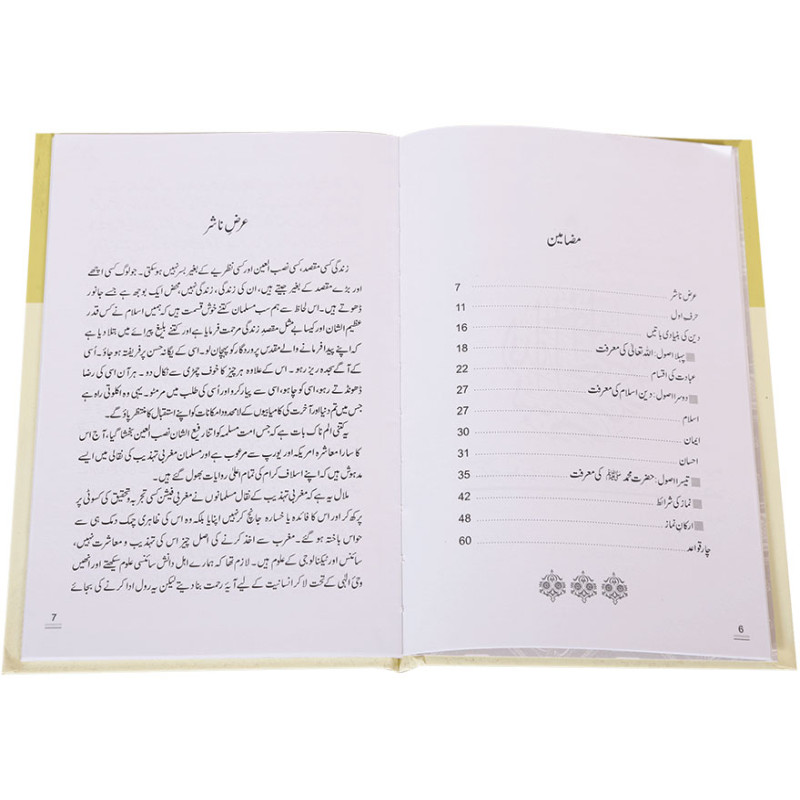 مضامین
عرض ناشر 7
حرف اول 11
دین کی بنیادی باتیں 16
پہلا اصول: اللہ تعالیٰ کی معرفت 18
عبادت کی اقسام 22
دوسرا اصول: دین اسلام کی معرفت 27
اسلام 27
ایمان 30
احسان 31
تیسرا اصول: حضرت محمد ﷺ کی معرفت 35
نماز کی شرائط 42
ارکان نماز 48
چار قواعد 60
6
عرضِ ناشر
زندگی کسی مقصد، کسی نصب العین اور کسی نظریے کے بغیر بسر نہیں ہو سکتی۔ جو لوگ کسی اچھے
اور بڑے مقصد کے بغیر جیتے ہیں، ان کی زندگی، زندگی نہیں، محض ایک بوجھ ہے جسے جانور
ڈھوتے ہیں۔ اس لحاظ سے ہم سب مسلمان کتنے خوش قسمت ہیں کہ ہمیں اسلام نے کس قدر
عظیم الشان اور کیسا بے مثل مقصدِ زندگی مرحمت فرمایا ہے اور کتنے بلیغ پیرائے میں بتلا دیا ہے
کہ اپنے پیدا فرمانے والے مقدس پروردگار کو پہچان لو۔ اسی کے یگانہ حسن پر فریفتہ ہو جاؤ۔ اُسی
کے آگے سجدہ ریز رہو۔ اس کے علاوہ ہر چیز کا خوف جھڑی سے نکال دو۔ ہر آن اسی کی رضا
ڈھونڈتے رہو، اسی کو چاہو، اسی سے پیار کرو اور اُسی کی طلب میں مر مٹو۔ یہی وہ اکلوتی راہ ہے
جس میں تم دنیا اور آخرت کی کامیابیوں کے لامحدود امکانات کو اپنے استقبال کا منتظر پاؤ گے۔
یہ کتنی الم ناک بات ہے کہ جس امت مسلمہ کو اتنا رفیع الشان نصب العین بخشا گیا، آج اس
کا سارا معاشرہ امریکہ اور یورپ سے مرعوب ہے اور مسلمان مغربی تہذیب کی نقالی میں ایسے
مدہوش ہیں کہ اپنے اسلاف کرام کی تمام اعلیٰ روایات بھول گئے ہیں۔
ملال یہ ہے کہ مغربی تہذیب کے نقال مسلمانوں نے مغربی فیشن کسی تجربہ و تحقیق کی کسوٹی پر
پرکھ کر اور اس کا فائدہ یا خسارہ جانچ کر نہیں اپنایا بلکہ وہ اس کی ظاہری چمک دمک ہی سے
حواس باختہ ہو گئے۔ مغرب سے اخذ کرنے کی اصل چیز اس کی تہذیب و معاشرت نہیں،
سائنس اور ٹیکنالوجی کے علوم ہیں۔ لازم تھا کہ ہمارے اہل دانش سائنسی علوم سیکھتے اور انھیں
وحیٔ الٰہی کے تحت لا کر انسانیت کے لیے آیۂ رحمت بنا دیتے لیکن یہ رول ادا کرنے کی بجائے
7